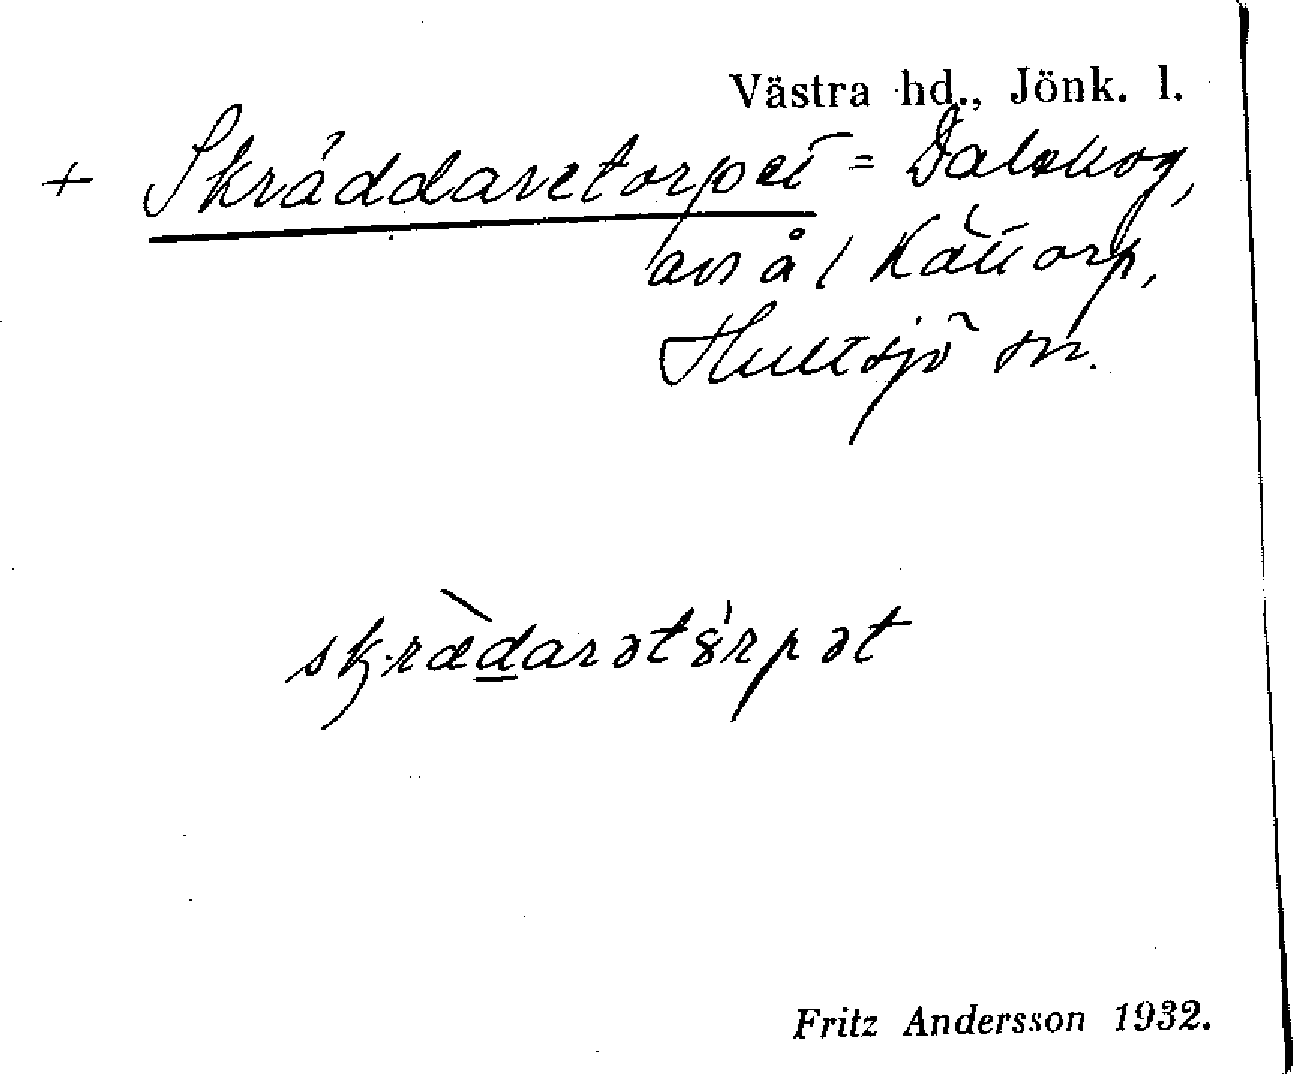 Västra hd., Jönk. l.
+ Skräddaretorpet = Dalskog,
avs å / Källtorp,
Hultsjö sn.
skrædarətȣrpət
Fritz Andersson 1932.